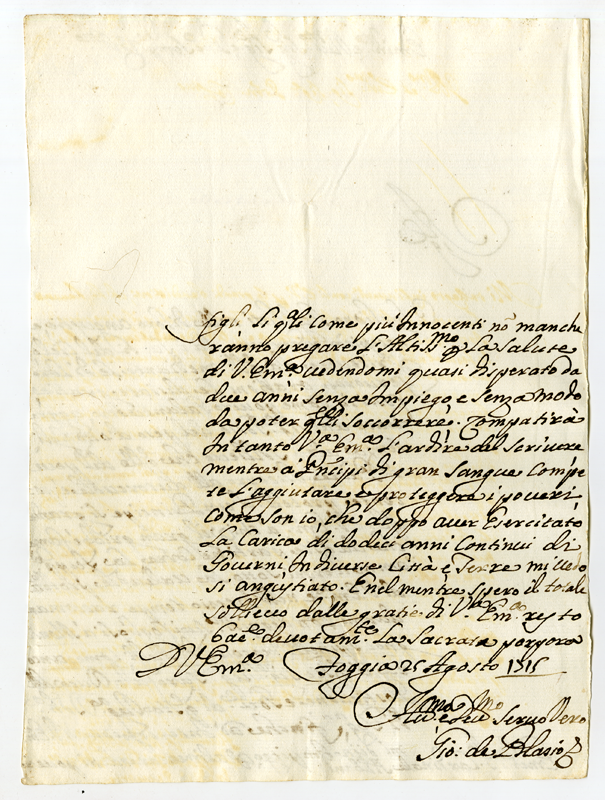 figli li q.li come più Innocenti nõ manche
ranno pregare L'Altiss.mo p La salute
di V. Em.a vedendomi quasi disperato da
due anni senza Impiego e senza modo
da poter q.lli soccorrere. Compatirà
In tanto V.a Em.a L'ardire del scrivere
mentre à Prĩcipi di gran sangue compe
te L'aggiutare e proteggere i poveri
come son io, che doppo aver Esercitato
La Carica di dodeci anni continui di
Governi In diverse Città e Terre mi vedo
si angustiato. E nel mentre spero il totale
sollievo dalle gratie di V.a Em.a resto
bac.do devotam.te La Sacrata porpora
D V Em.a Foggia 25 Agosto 1715
Hu.mo e Dev.mo Servo Vero
Gio: de Blasio